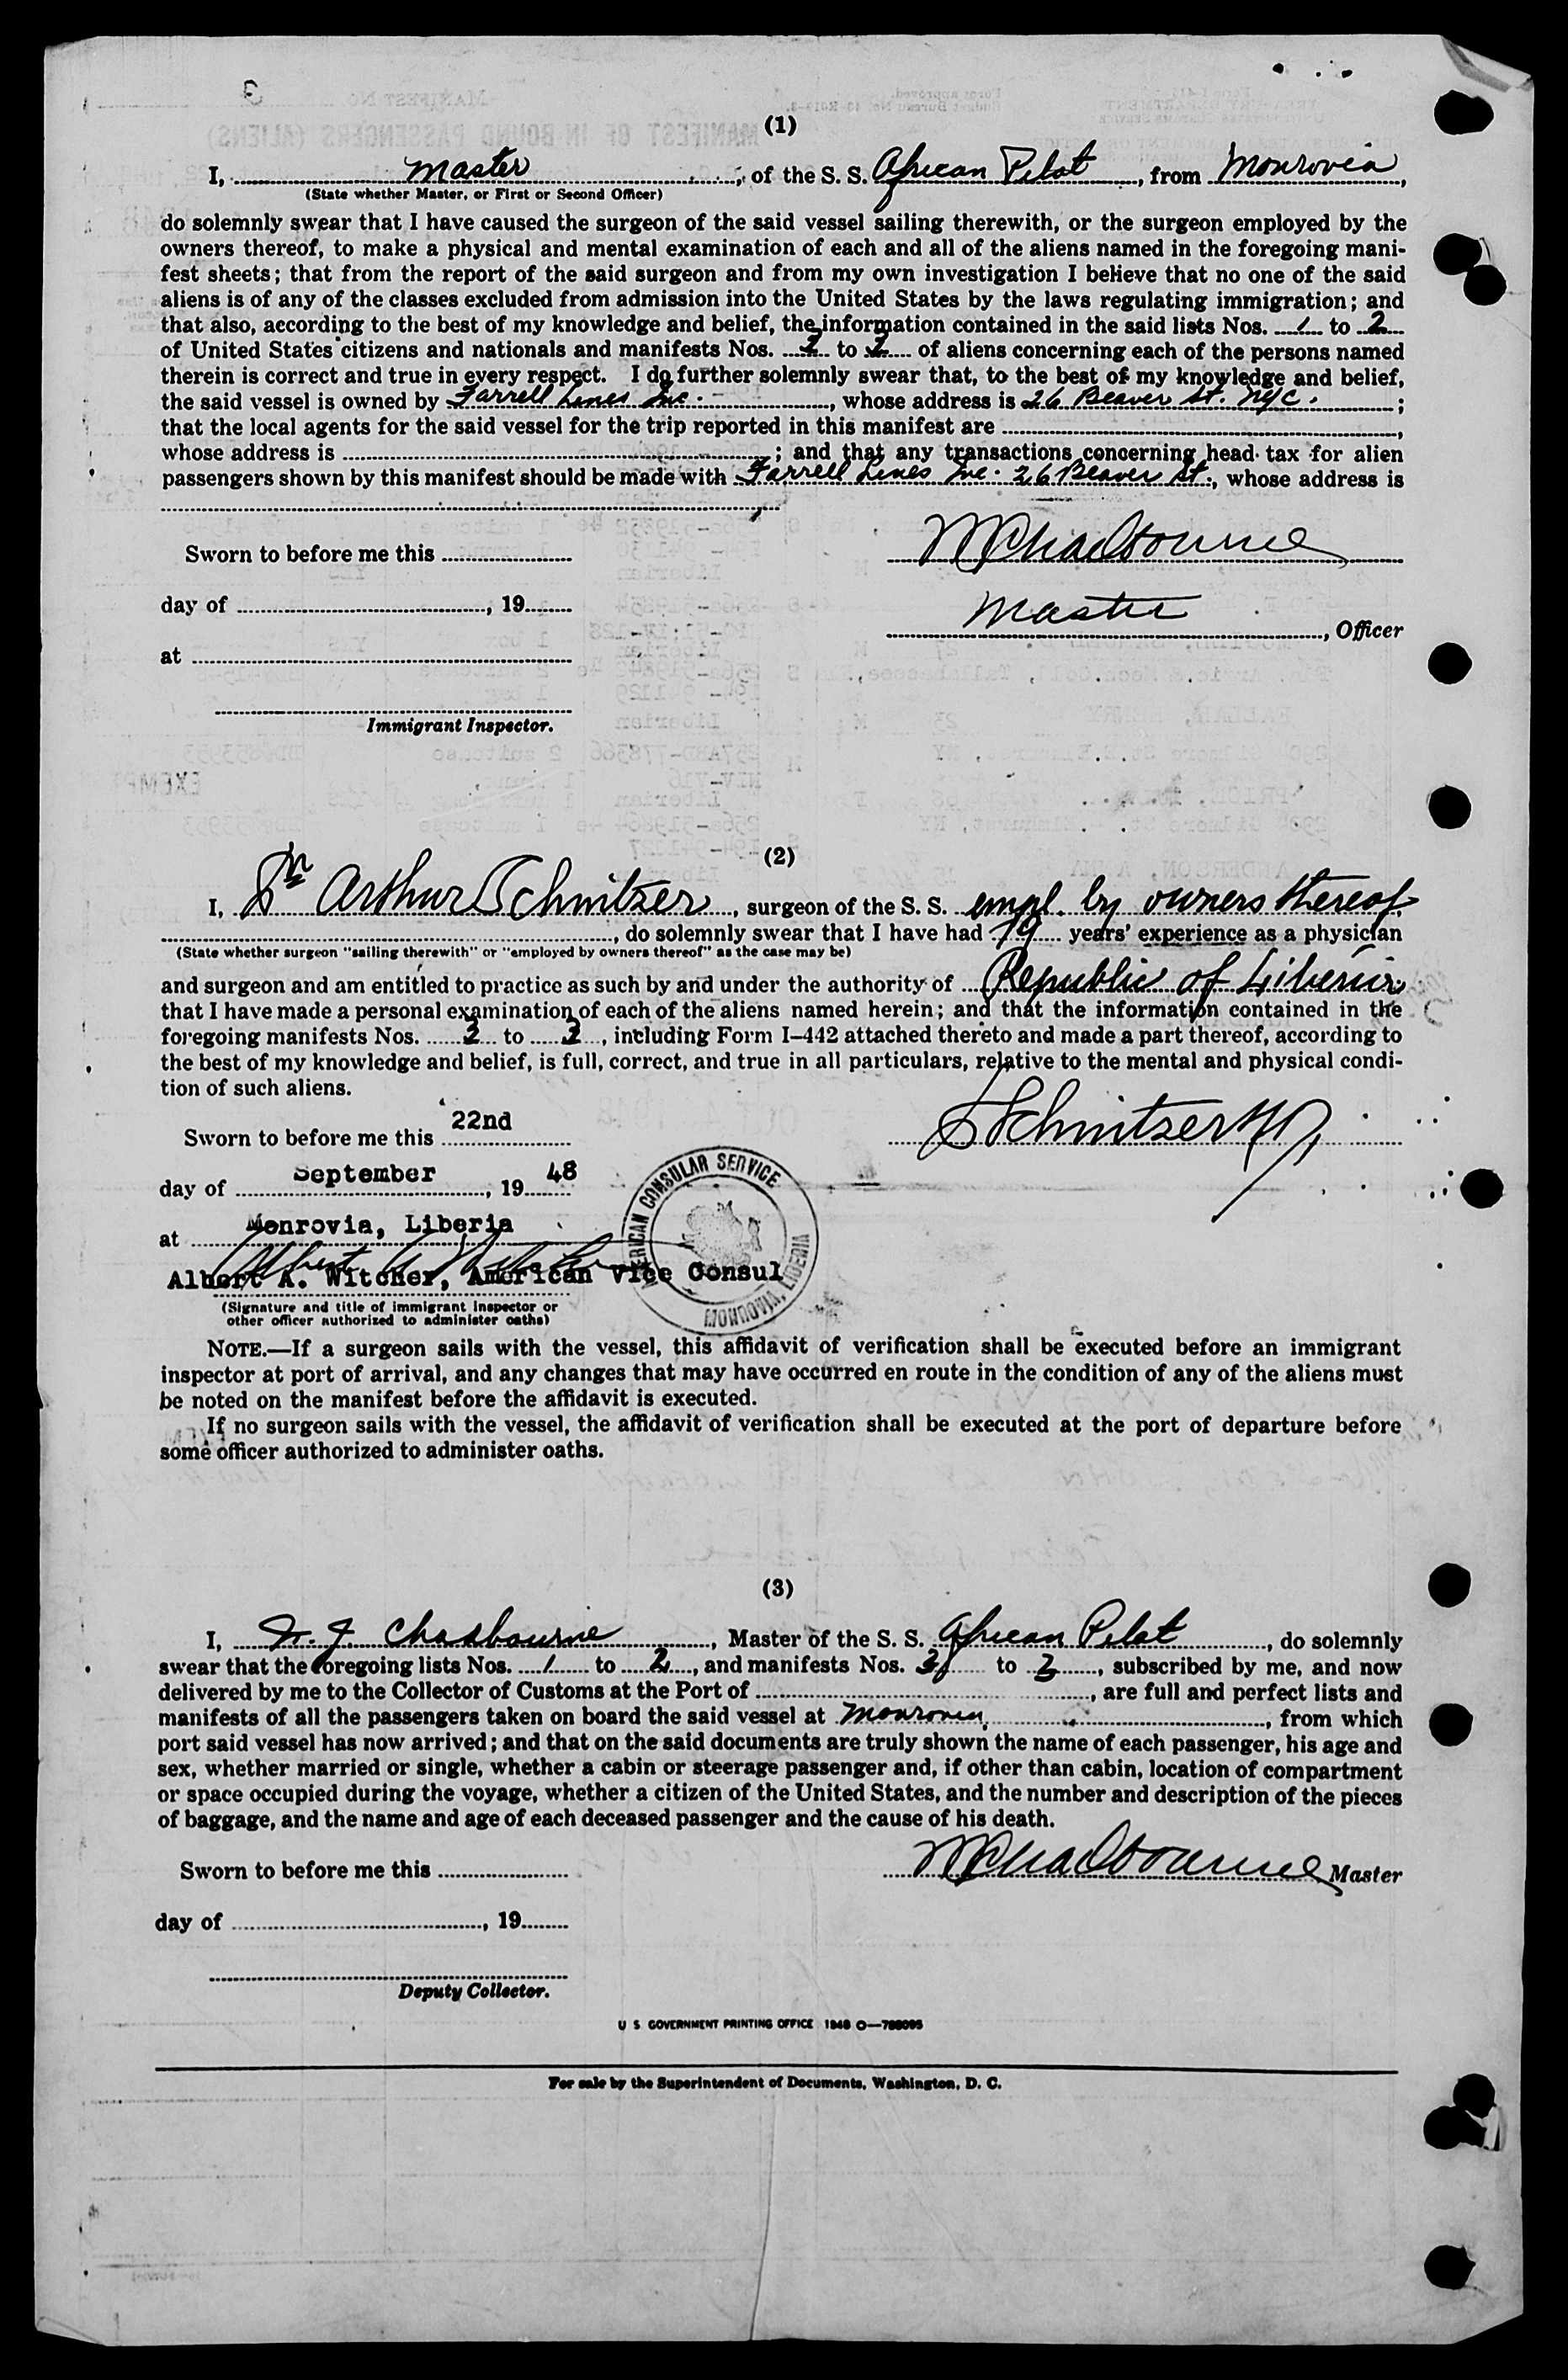 (1)
I, Master, of the S. S. African Pilot, from Monrovia,
(State whether Master, or First or Second Officer)
do solemnly swear that I have caused the surgeon of the said vessel sailing therewith, or the surgeon employed by the
owners thereof, to make a physical and mental examination of each and all of the aliens named in the foregoing mani-
fest sheets; that from the report of the said surgeon and from my own investigation I believe that no one of the said
aliens is of any of the classes excluded from admission into the United States by the laws regulating immigration; and
that also, according to the best of my knowledge and belief, the information contained in the said lists Nos. 1 to 2
of United States citizens and nationals and manifests Nos. to of aliens concerning each of the persons named
therein is correct and true in every respect. I do further solemnly swear that, to the best of my knowledge and belief,
the said vessel is owned by Farrell Lines Inc., whose address is 26 Beaver St. NYC. ;
that the local agents for the said vessel for the trip reported in this manifest are ,
whose address is ; and that any transactions concerning head tax for alien
passengers shown by this manifest should be made with Farrell Lines Inc. 26 Beaver St., whose address is
Sworn to before me this
day of , 19
Master, Officer
at
Immigrant Inspector.
(2)
I, Dr Arthur Schnitzer, surgeon of the S. S. empl. by owners thereof
, do solemnly swear that I have had 19 years' experience as a physician
(State whether surgeon "sailing therewith" or "employed by owners thereof" as the case may be)
and surgeon and am entitled to practice as such by and under the authority of Republic of Liberia
that I have made a personal examination of each of the aliens named herein; and that the information contained in the
foregoing manifests Nos. 3 to 3, including Form I-442 attached thereto and made a part thereof, according to
the best of my knowledge and belief, is full, correct, and true in all particulars, relative to the mental and physical condi-
tion of such aliens.
Sworn to before me this 22nd
Schnitzer MD
day of September, 19 48
AMERICAN CONSULAR SERVICE
MONROVIA, LIBERIA
at Monrovia, Liberia
Albert A. Witcher, American Vice Consul
(Signature and title of immigrant inspector or
other officer authorized to administer oaths)
NOTE.—If a surgeon sails with the vessel, this affidavit of verification shall be executed before an immigrant
inspector at port of arrival, and any changes that may have occurred en route in the condition of any of the aliens must
be noted on the manifest before the affidavit is executed.
If no surgeon sails with the vessel, the affidavit of verification shall be executed at the port of departure before
some officer authorized to administer oaths.
(3)
I, W. J. Chadbourne, Master of the S. S. African Pilot, do solemnly
swear that the foregoing lists Nos. 1 to 2, and manifests Nos. 3 to 3, subscribed by me, and now
delivered by me to the Collector of Customs at the Port of , are full and perfect lists and
manifests of all the passengers taken on board the said vessel at Monrovia, from which
port said vessel has now arrived; and that on the said documents are truly shown the name of each passenger, his age and
sex, whether married or single, whether a cabin or steerage passenger and, if other than cabin, location of compartment
or space occupied during the voyage, whether a citizen of the United States, and the number and description of the pieces
of baggage, and the name and age of each deceased passenger and the cause of his death.
Sworn to before me this
WJChadbourne Master
day of , 19
Deputy Collector.
U S GOVERNMENT PRINTING OFFICE
For sale by the Superintendent of Documents, Washington, D. C.